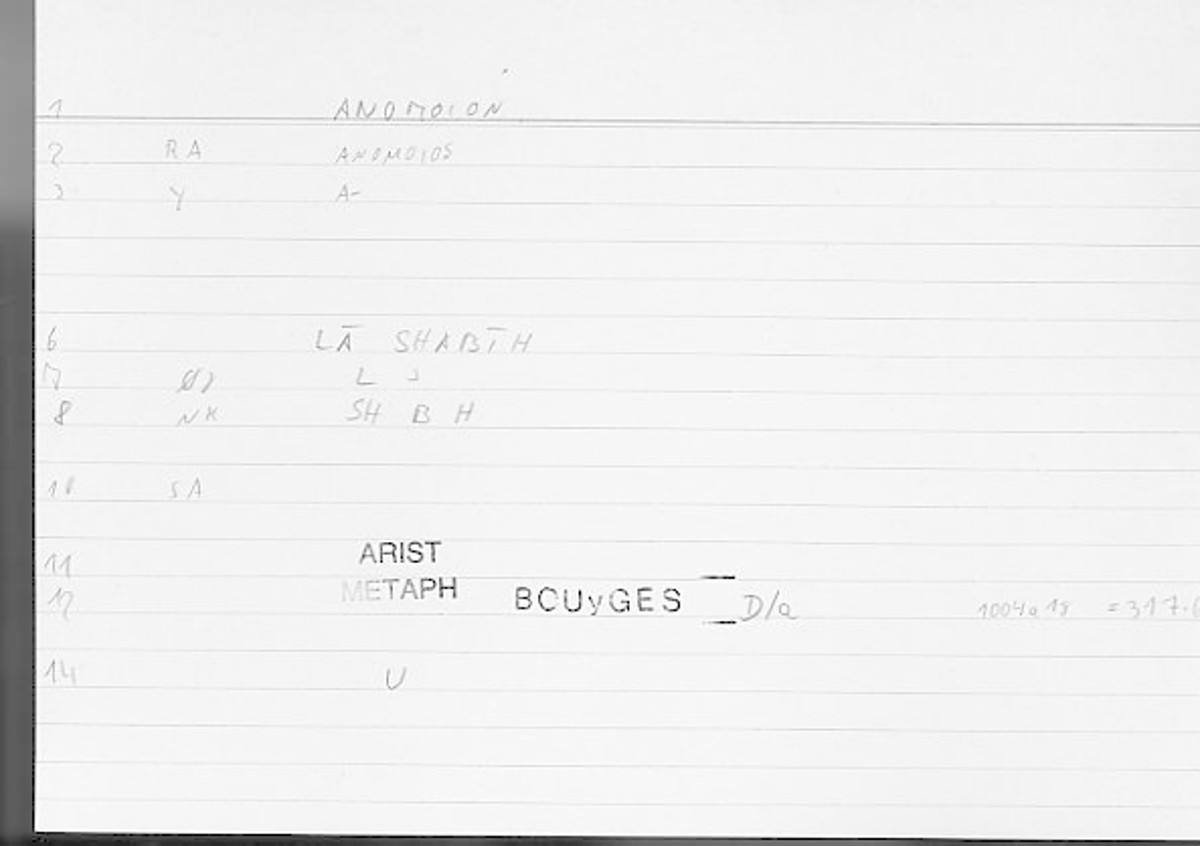 1 ANOMOION
2 RA ANOMOIOS
3 Y A-
6 LĀ SHABĪH
7 L
8 NK SH B H
10 SA
11 ARIST
12 METAPH BOUyGES D/a 1004a18 =317.6
14 U